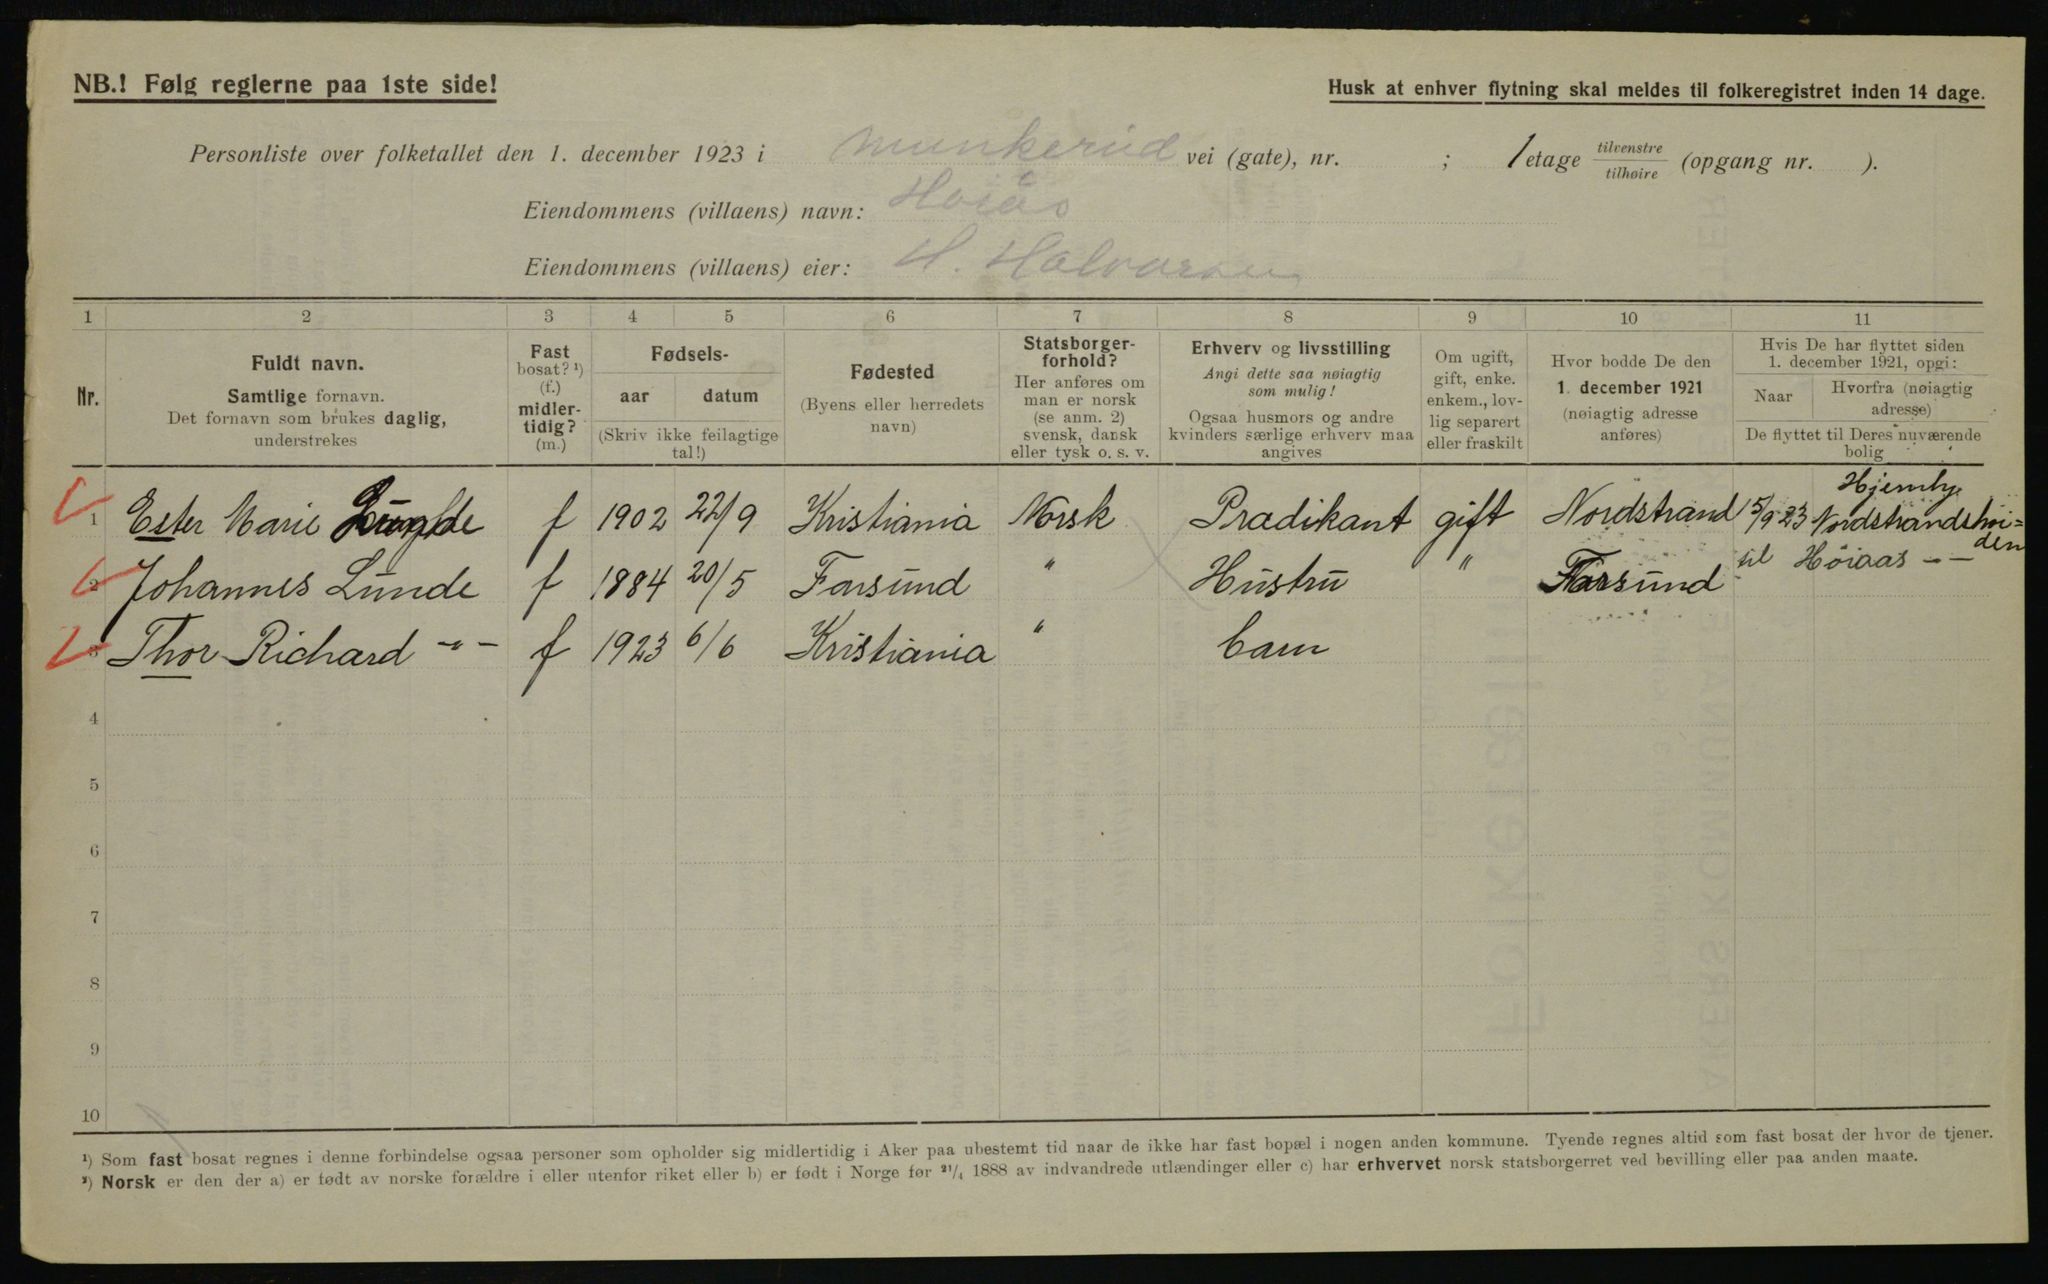 NB.! Følg reglerne paa 1ste side!
Husk at enhver flytning skal meldes til folkeregistret inden 14 dage.
Personliste over folketallet den 1. december 1923 i Munkerud vei (gate), nr. ; 1 etage tilvenstre / tilhøire (opgang nr. ).
Eiendommens (villaens) navn: Høiås
Eiendommens (villaens) eier: H. Halvorsen
1 2 3 4 5 6 7 8 9 10 11
Nr.
Fuldt navn.
Samtlige fornavn.
Det fornavn som brukes daglig,
understrekes
Fast
bosat? ¹)
(f.)
midler-
tidig?
(m.)
Fødsels-
aar datum
(Skriv ikke feilagtige
tal!)
Fødested
(Byens eller herredets
navn)
Statsborger-
forhold?
Her anføres om
man er norsk
(se anm. 2)
svensk, dansk
eller tysk o. s. v.
Erhverv og livsstilling
Angi dette saa nøiagtig
som mulig!
Ogsaa husmors og andre
kvinders særlige erhverv maa
angives
Om ugift,
gift, enke.
enkem., lov-
lig separert
eller fraskilt
Hvor bodde De den
1. december 1921
(nøiagtig adresse
anføres)
Hvis De har flyttet siden
1. december 1921, opgi:
Naar Hvorfra (nøiagtig
adresse)
De flyttet til Deres nuværende
bolig
Hjemly
1 Ester Marie Lunde f 1902 22/9 Kristiania Norsk Prædikant gift Nordstrand 15/9 23 Nordstrandshøi=
den
2 Johannes Lunde f 1884 20/5 Farsund " Hustru " Farsund til Høiaas - -
3 Thor Richard -"- f 1923 6/6 Kristiania " barn
4
5
6
7
8
9
10
¹) Som fast bosat regnes i denne forbindelse ogsaa personer som opholder sig midlertidig i Aker paa ubestemt tid naar de ikke har fast bopæl i nogen anden kommune. Tyende regnes altid som fast bosat der hvor de tjener.
²) Norsk er den der a) er født av norske forældre i eller utenfor riket eller b) er født i Norge før 21/4 1888 av indvandrede utlændinger eller c) har erhvervet norsk statsborgerret ved bevilling eller paa anden maate.